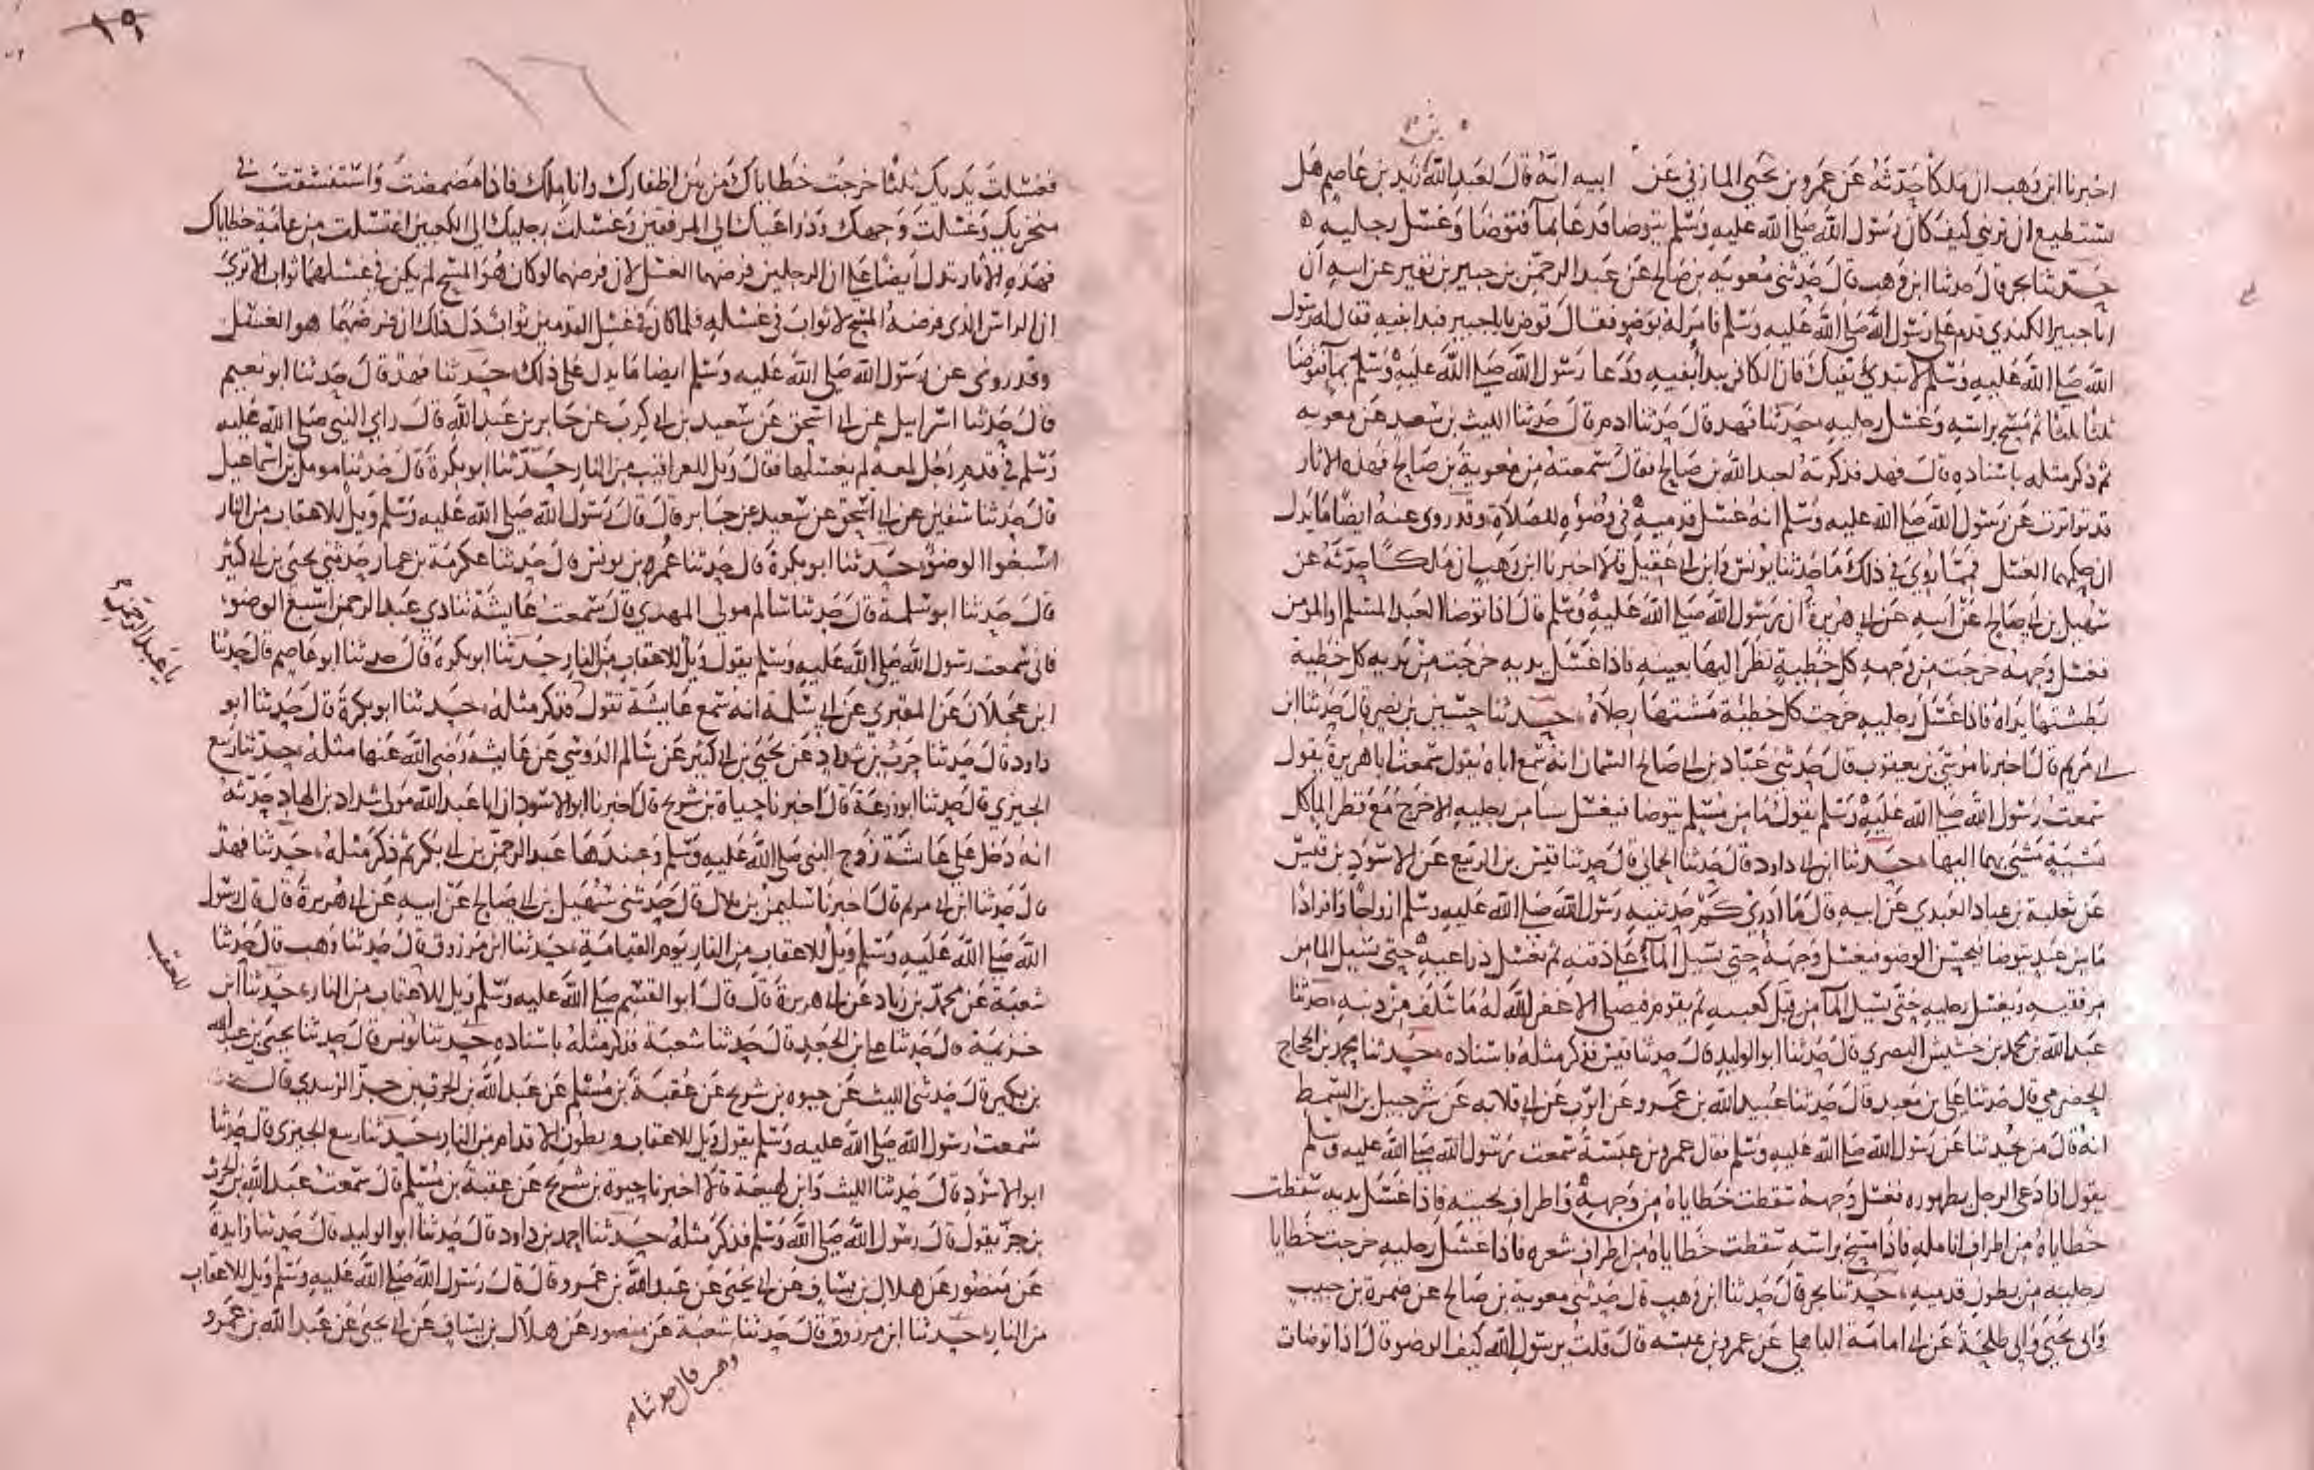 اخبرنا ابن وهب ان ملكا حدثه عن عمرو بن يحيى المازني عن ابيه انه قال لعبد الله بن زيد بن عاصم هل
تستطيع ان تريني كيف كان رسول الله صلى الله عليه وسلم يتوضا فدعا بمآ فتوضا وغسل رجليه
حدثنا بحر قال حدثنا ابن وهب قال حدثني معوية بن صالح عن عبد الرحمن بن جبير بن نفير عن ابيه ان
ابا جبير الكندي قدم على رسول الله صلى الله عليه وسلم فامر له بوضو فقال توض يا باجبير فبدا بفيه فقال له رسول
الله صلى الله عليه وسلم لا تبتدئ بفيك فان الكافر يبدا بفيه ودعا رسول الله صلى الله عليه وسلم بمآ فتوضا
ثلثا ثلثا ثم مسح براسه وغسل رجليه حدثنا فهد قال حدثنا ادم قال حدثنا الليث بن سعد عن معوية
ثم ذكر مثله باسناده قال فهد فذكرته لعبد الله بن صالح فقال سمعته من معوية بن صالح فهذه الاثار
قد تواترت عن رسول الله صلى الله عليه وسلم انه غسل قدميه في وضوئه للصلاة وقد روى عنه ايضا ما يدل
ان حكمهما الغسل فمما روي في ذلك ما حدثنا يونس وابن ابي عقيل قالا اخبرنا ابن وهب ان ملكا حدثه عن
سهيل بن ابي صالح عن ابيه عن ابي هريرة ان رسول الله صلى الله عليه وسلم قال اذا توضا العبد المسلم او المومن
فغسل وجهه خرجت من وجهه كل خطيئة نظر اليها بعينه فاذا غسل يديه خرجت من يديه كل خطيئة
بطشتها يداه فاذا غسل رجليه خرجت كل خطيئة مشتها رجلاه حدثنا حسين بن نصر قال حدثنا ابن
ابي مريم قال اخبرنا موسى بن يعقوب قال حدثني عباد بن ابي صالح السمان انه سمع اباه يقول سمعت ابا هريرة يقول
سمعت رسول الله صلى الله عليه وسلم يقول ما من مسلم يتوضا فيغسل سا من رجليه الا خرج مع قطر الما كل
مشية مشى بهما اليها حدثنا ابن ابي داود قال حدثنا الحماني قال حدثنا قيس بن الربيع عن الاسود بن قيس
عن ثعلبة بن عباد العبدي عن ابيه قال ما ادري كم حدثنيه رسول الله صلى الله عليه وسلم ازواجا وافرادا
ما من عبد يتوضا فيحسن الوضو فيغسل وجهه حتى يسيل المآ على ذقنه ثم يغسل ذراعيه حتى يسيل الما من
مرفقيه ويغسل رجليه حتى يسيل المآ من قبل كعبيه ثم يقوم فيصلي الا غفر الله له ما سلف من ذنبه حدثنا
عبد الله بن محمد بن خشيش البصري قال حدثنا ابو الوليد قال حدثنا قيس فذكر مثله باسناده حدثنا محمد بن الحجاج
الحضرمي قال حدثنا علي بن معبد قال حدثنا عبيد الله بن عمرو عن ايوب عن ابي قلابه عن شرحبيل بن السمط
انه قال من يحدثنا عن رسول الله صلى الله عليه وسلم فقال عمرو بن عبسة سمعت رسول الله صلى الله عليه وسلم
يقول اذا دعى الرجل بطهوره فغسل وجهه سقطت خطاياه من وجهه واطراف لحيته فاذا غسل يديه سقطت
خطاياه من اطراف انامله فاذا مسح براسه سقطت خطاياه من اطراف شعره فاذا غسل رجليه خرجت خطايا
رجليه من بطون قدميه حدثنا بحر قال حدثنا ابن وهب قال حدثني معوية بن صالح عن ضمرة بن حبيب
وابي يحيى وابي طلحة عن ابي امامة الباهلي عن عمرو بن عبسه قال قلت يرسول الله كيف الوضو قال اذا توضات
فغسلت يديك ثلثا خرجت خطاياك من بين اظفارك واناملك فاذا مضمضت واستنشقت في
منخريك وغسلت وجهك وذراعيك الى المرفقين وغسلت رجليك الى الكعبين اغتسلت من عامة خطاياك
فهذه الاثار تدل ايضا على ان الرجلين فرضهما الغسل لان فرضهما لو كان هو المسح لم يكن في غسلهما ثواب الا ترى
ان الراس الذي فرضه المسح لا ثواب في غسله فلما كان في غسل القدمين ثواب دل ذلك ان فرضهما هو الغسل
وقد روى عن رسول الله صلى الله عليه وسلم ايضا ما يدل على ذلك حدثنا فهد قال حدثنا ابو نعيم
قال حدثنا اسرائيل عن ابي اسحق عن سعيد بن ابي كرب عن جابر بن عبد الله قال راى النبي صلى الله عليه
وسلم في قدم رجل لمعة لم يغسلها فقال ويل للعراقيب من النار حدثنا ابو بكرة قال حدثنا مومل بن اسماعيل
قال حدثنا سفين عن ابي اسحق عن سعيد عن جابر قال قال رسول الله صلى الله عليه وسلم ويل للاعقاب من النار
اسبغوا الوضو حدثنا ابو بكرة قال حدثنا عمر بن يونس قال حدثنا عكرمة بن عمار حدثني يحيى بن ابي كثير
قال حدثنا ابو سلمة قال حدثنا سالم مولى المهدي قال سمعت عايشة تنادي عبد الرحمن اسبغ الوضو
فاني سمعت رسول الله صلى الله عليه وسلم يقول ويل للاعقاب من النار حدثنا ابو بكرة قال حدثنا ابو عاصم قال حدثنا
يا عبد الرحمن
ابن عجلان عن المقبري عن ابي سلمة انه سمع عايشة تقول فذكر مثله حدثنا ابو بكرة قال حدثنا ابو
داود قال حدثنا حرب بن شداد عن يحيى بن ابي كثير عن سالم الدوسي عن عايشه رضي الله عنها مثله حدثنا ربيع
الجيزي قال حدثنا ابو زرعة قال اخبرنا حياة بن شريح قال اخبرنا ابو الاسود ان ابا عبد الله مولى شداد بن الهاد حدثه
انه دخل على عايشة زوج النبي صلى الله عليه وسلم وعندها عبد الرحمن بن ابي بكر ثم ذكر مثله حدثنا فهد
قال حدثنا ابن ابي مريم قال اخبرنا سليمن بن بلال قال حدثني سهيل بن ابي صالح عن ابيه عن ابي هريرة قال قال رسول
الله صلى الله عليه وسلم ويل للاعقاب من النار يوم القيامة حدثنا ابن مرزوق قال حدثنا وهب قال حدثنا
للعقب
شعبة عن محمد بن زياد عن ابي هريرة قال قال ابو القسم صلى الله عليه وسلم ويل للاعقاب من النار حدثنا ابن
خزيمة قال حدثنا علي بن الجعد قال حدثنا شعبة فذكر مثله باسناده حدثنا يونس قال حدثنا يحيى بن عبد الله
بن بكير قال حدثني الليث عن حيوه بن شريح عن عقبة بن مسلم عن عبد الله بن الحرث بن جز الزبيدي قال
سمعت رسول الله صلى الله عليه وسلم يقول ويل للاعقاب وبطون الاقدام من النار حدثنا ربيع الجيزي قال حدثنا
ابو الاسود قال حدثنا الليث وابن لهيعة قالا اخبرنا حيوة بن شريح عن عقبة بن مسلم قال سمعت عبد الله بن الحرث
بن جز يقول قال رسول الله صلى الله وسلم فذكر مثله حدثنا احمد بن داود قال حدثنا ابو الوليد قال حدثنا زايدة
عن منصور عن هلال بن يساف عن ابي يحيى عن عبد الله بن عمرو قال قال رسول الله صلى الله عليه وسلم ويل للاعقاب
من النار حدثنا ابن مرزوق قال حدثنا شعبة عن منصور عن هلال بن يساف عن ابي يحيى عن عبد الله بن عمرو
وهب قال حدثنا